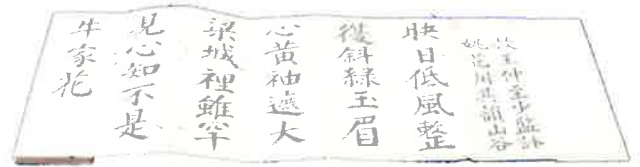 效王仲至少監詠
姚花用其韻山谷
映日低風整
復斜綠玉眉
心黃袖遮大
梁城裡雖罕
見心知不是
牛家花